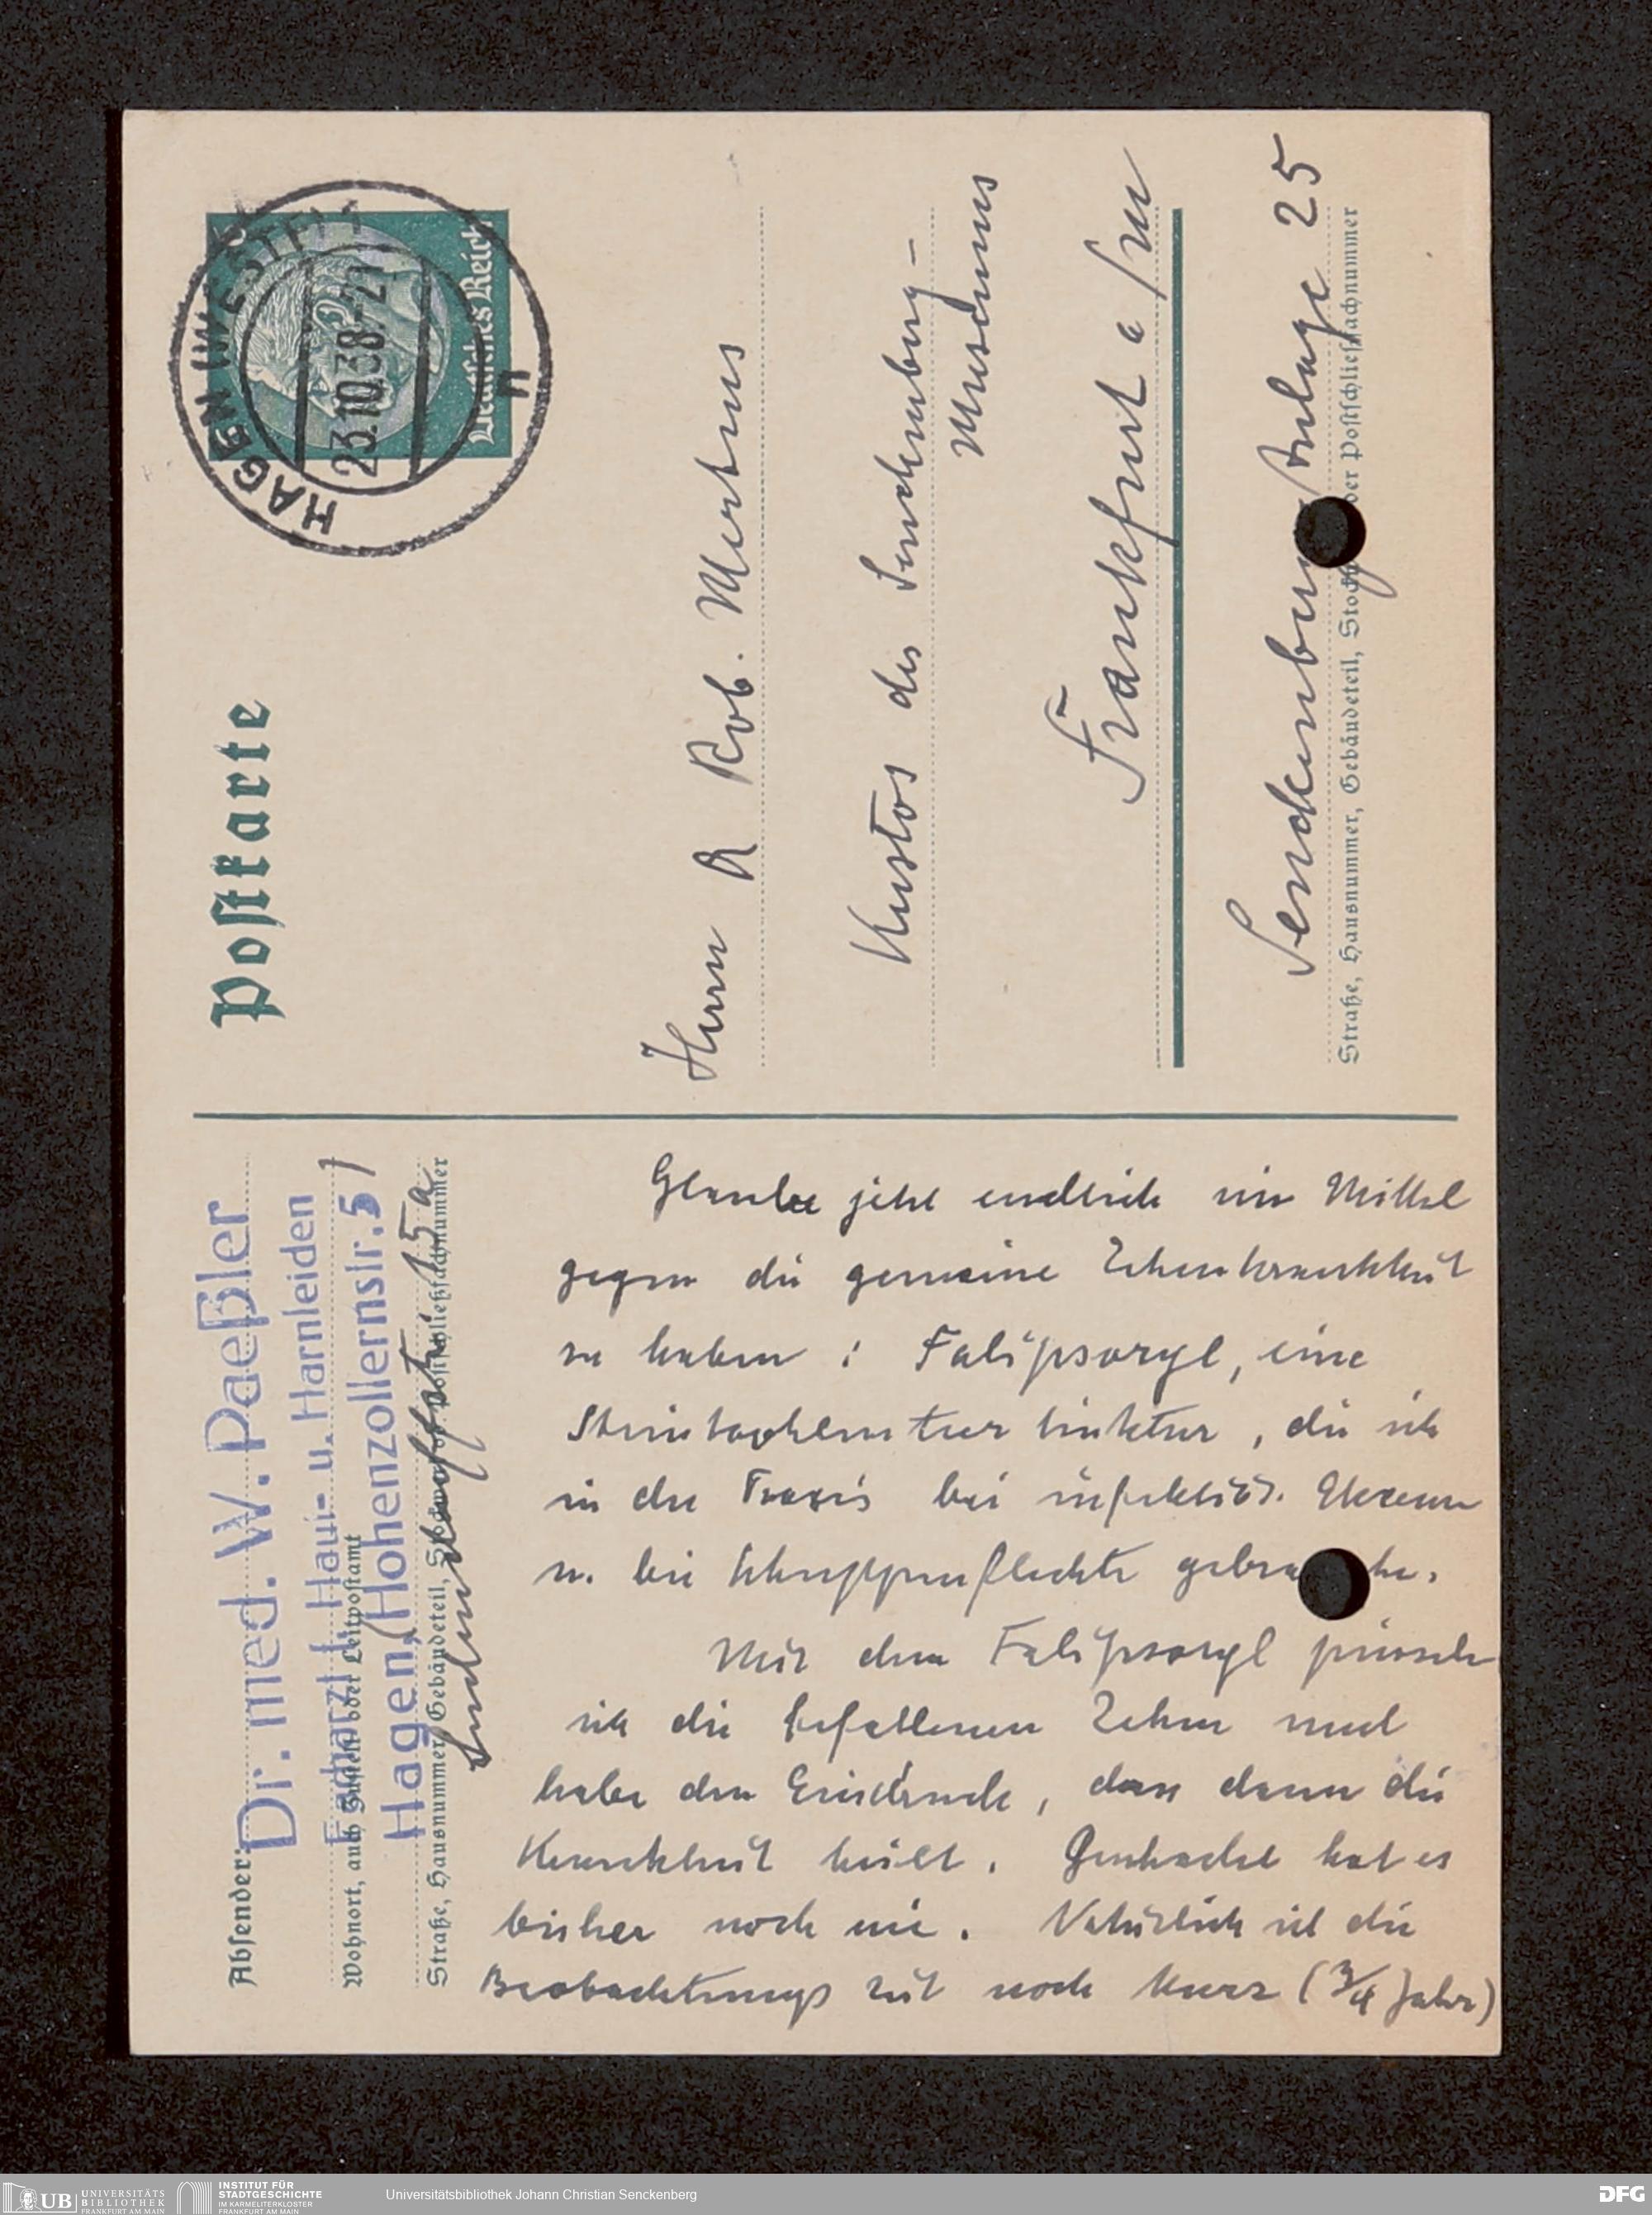 Postkarte
HAGEN (WESTF) 1
23.10.38.-21
n
Deutsches Reich
Herrn Dr Rob. Mertens
Kustos des Senckenberg-
Museums
Frankfurt a/M
Senckenberg Anlage 25
Straße, Hausnummer, Gebäudeteil, Stockwerk oder Postschließfachnummer
Absender:
Dr. med. W. Paeßler
Facharzt f. Haut- u. Harnleiden
Wohnort, auch Zustell- oder Leitpostamt
Hagen, Hohenzollernstr. 5
Straße, Hausnummer, Gebäudeteil, Stockwerk oder Postschließfachnummer
15a
Glaube jetzt endlich ein Mittel
gegen die gemeine Zehenkrankheit
zu haben: Falipsoryl, eine
Steinkohlenteertinktur, die ich
in der Praxis bei infektiös. Ekzemen
u. bei Schuppenflechte gebrauche.
Mit dem Falipsoryl pinsele
ich die befallenen Zehen und
habe den Eindruck, dass dann die
Krankheit heilt. Geschadet hat es
bisher noch nie. Natürlich ist die
Beobachtungszeit noch kurz (3/4 Jahr)
UB UNIVERSITÄTS
BIBLIOTHEK
FRANKFURT AM MAIN
INSTITUT FÜR
STADTGESCHICHTE
IM KARMELITERKLOSTER
FRANKFURT AM MAIN
Universitätsbibliothek Johann Christian Senckenberg
DFG